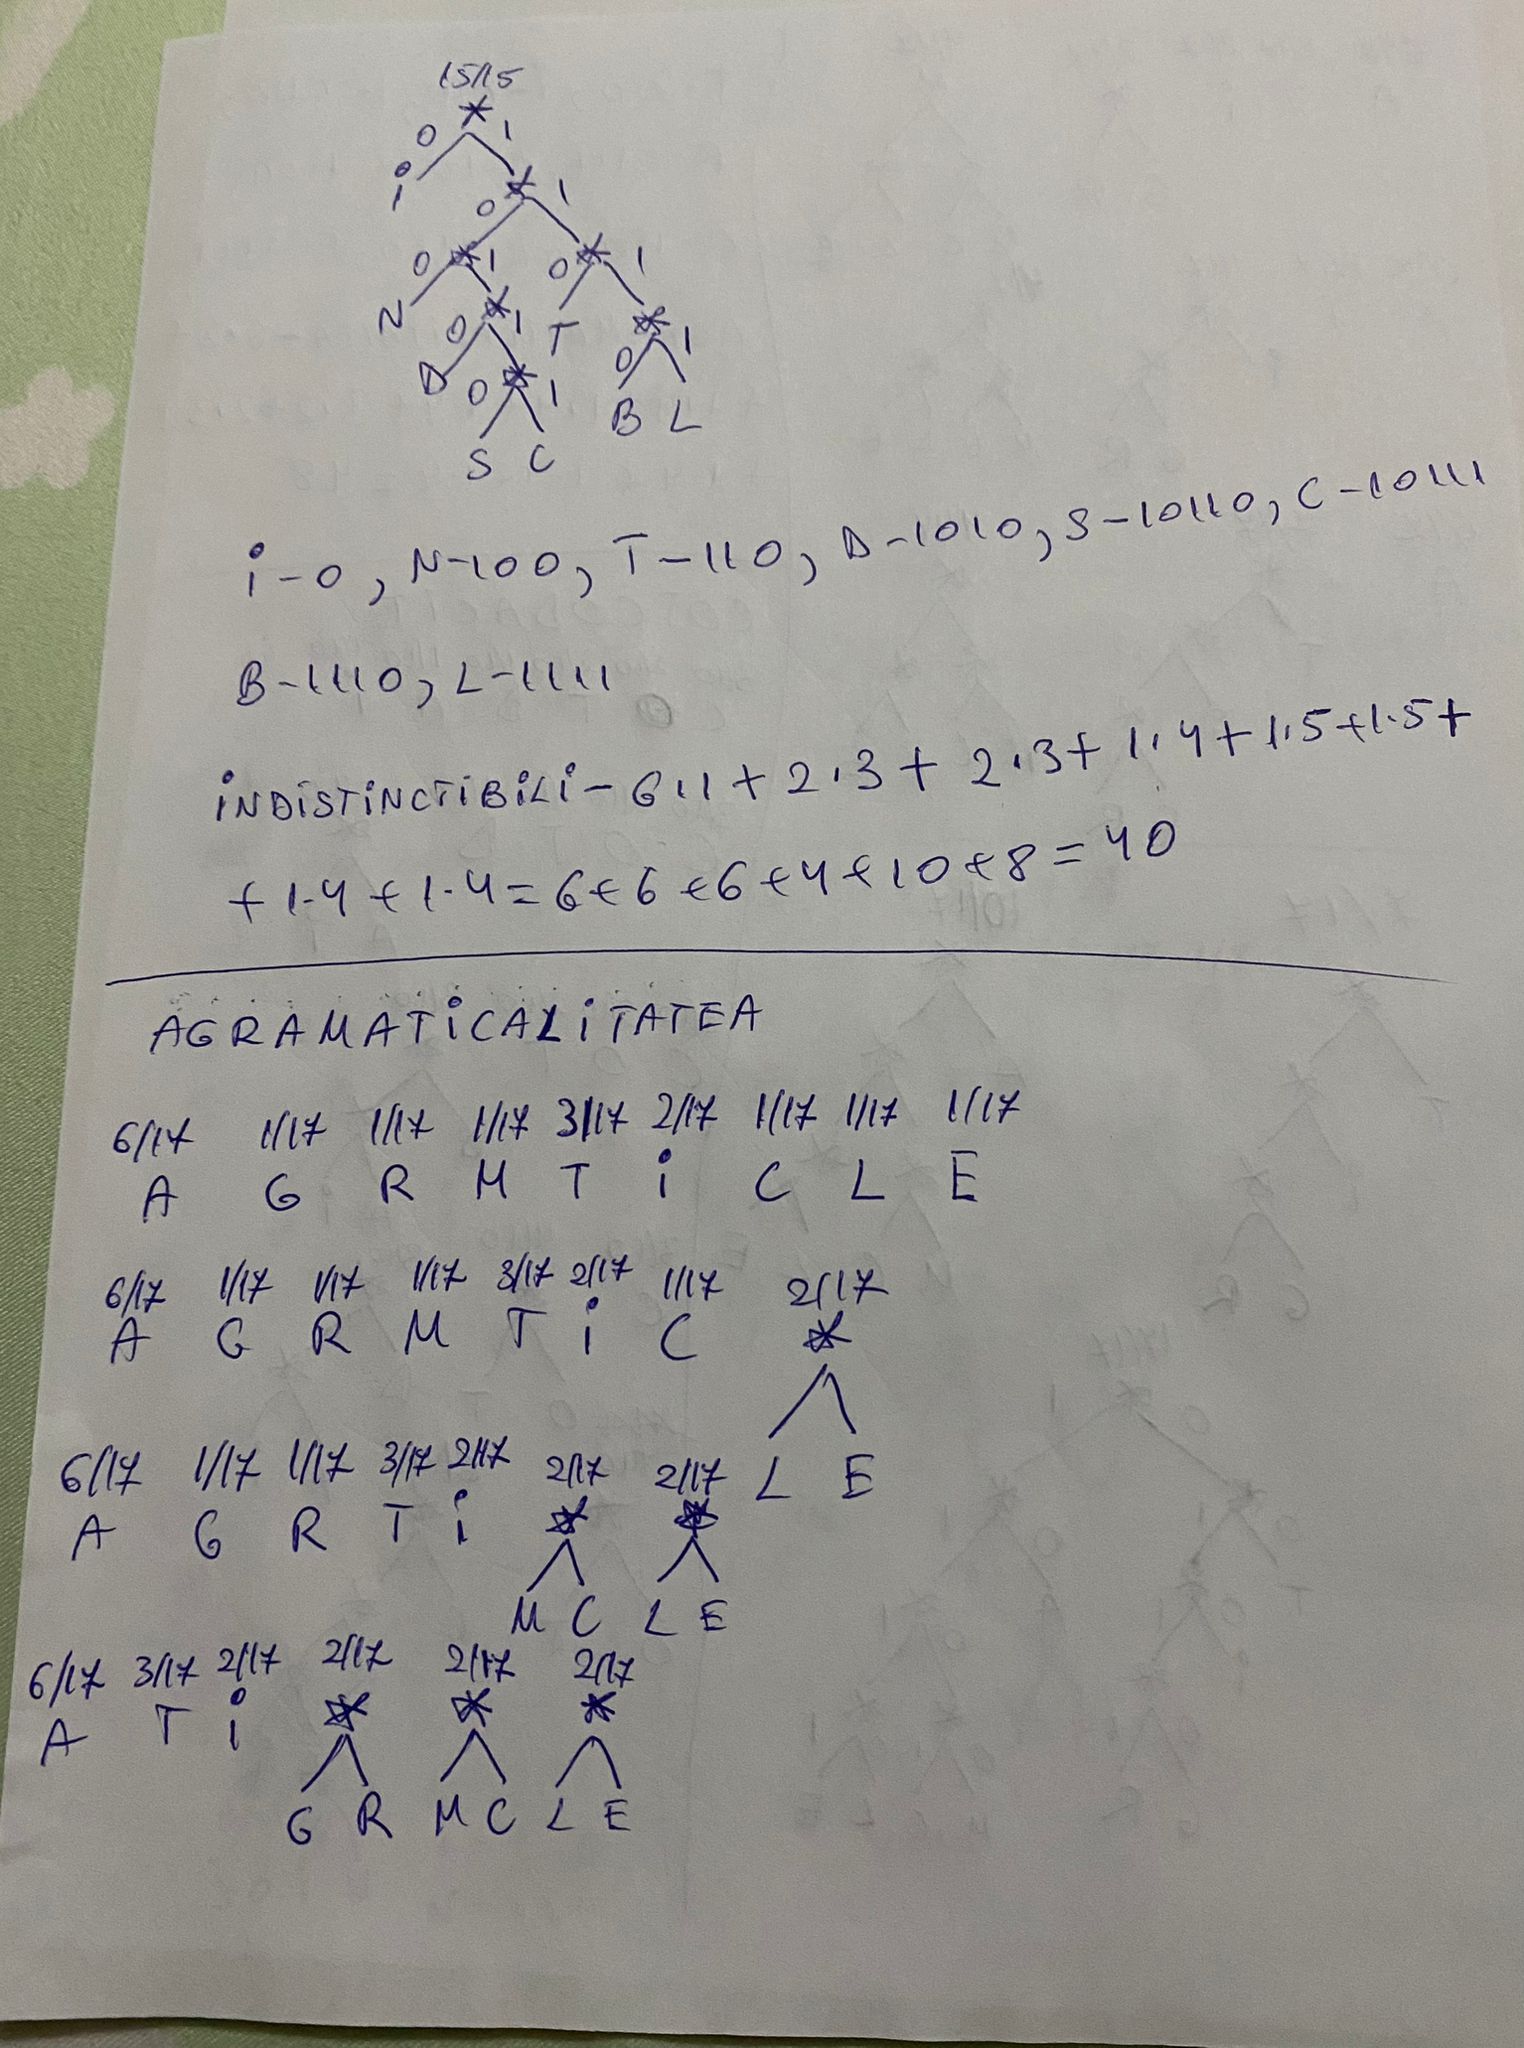 15/15
*
0 1
i * 1
0
0 * 1 0 * 1
N 0 * 1 T * 1
D 0 * 1 0
B L
S C
i-0, N-100, T-110, D-1010, S-10110, C-10111
B-1110, L-1111
iNDiSTiNCTiBiLi - 6·1 + 2·3 + 2·3 + 1·4 + 1·5 + 1·5 +
+ 1·4 + 1·4 = 6 + 6 + 6 + 4 + 10 + 8 = 40
AGRAMATiCALiTATEA
6/17 1/17 1/17 1/17 3/17 2/17 1/17 1/17 1/17
A G R M T i C L E
6/17 1/17 1/17 1/17 3/17 2/17 1/17 2/17
A G R M T i C *
L E
6/17 1/17 1/17 3/17 2/17 2/17 2/17
A G R T i * *
M C L E
6/17 3/17 2/17 2/17 2/17 2/17
A T i * * *
G R M C L E